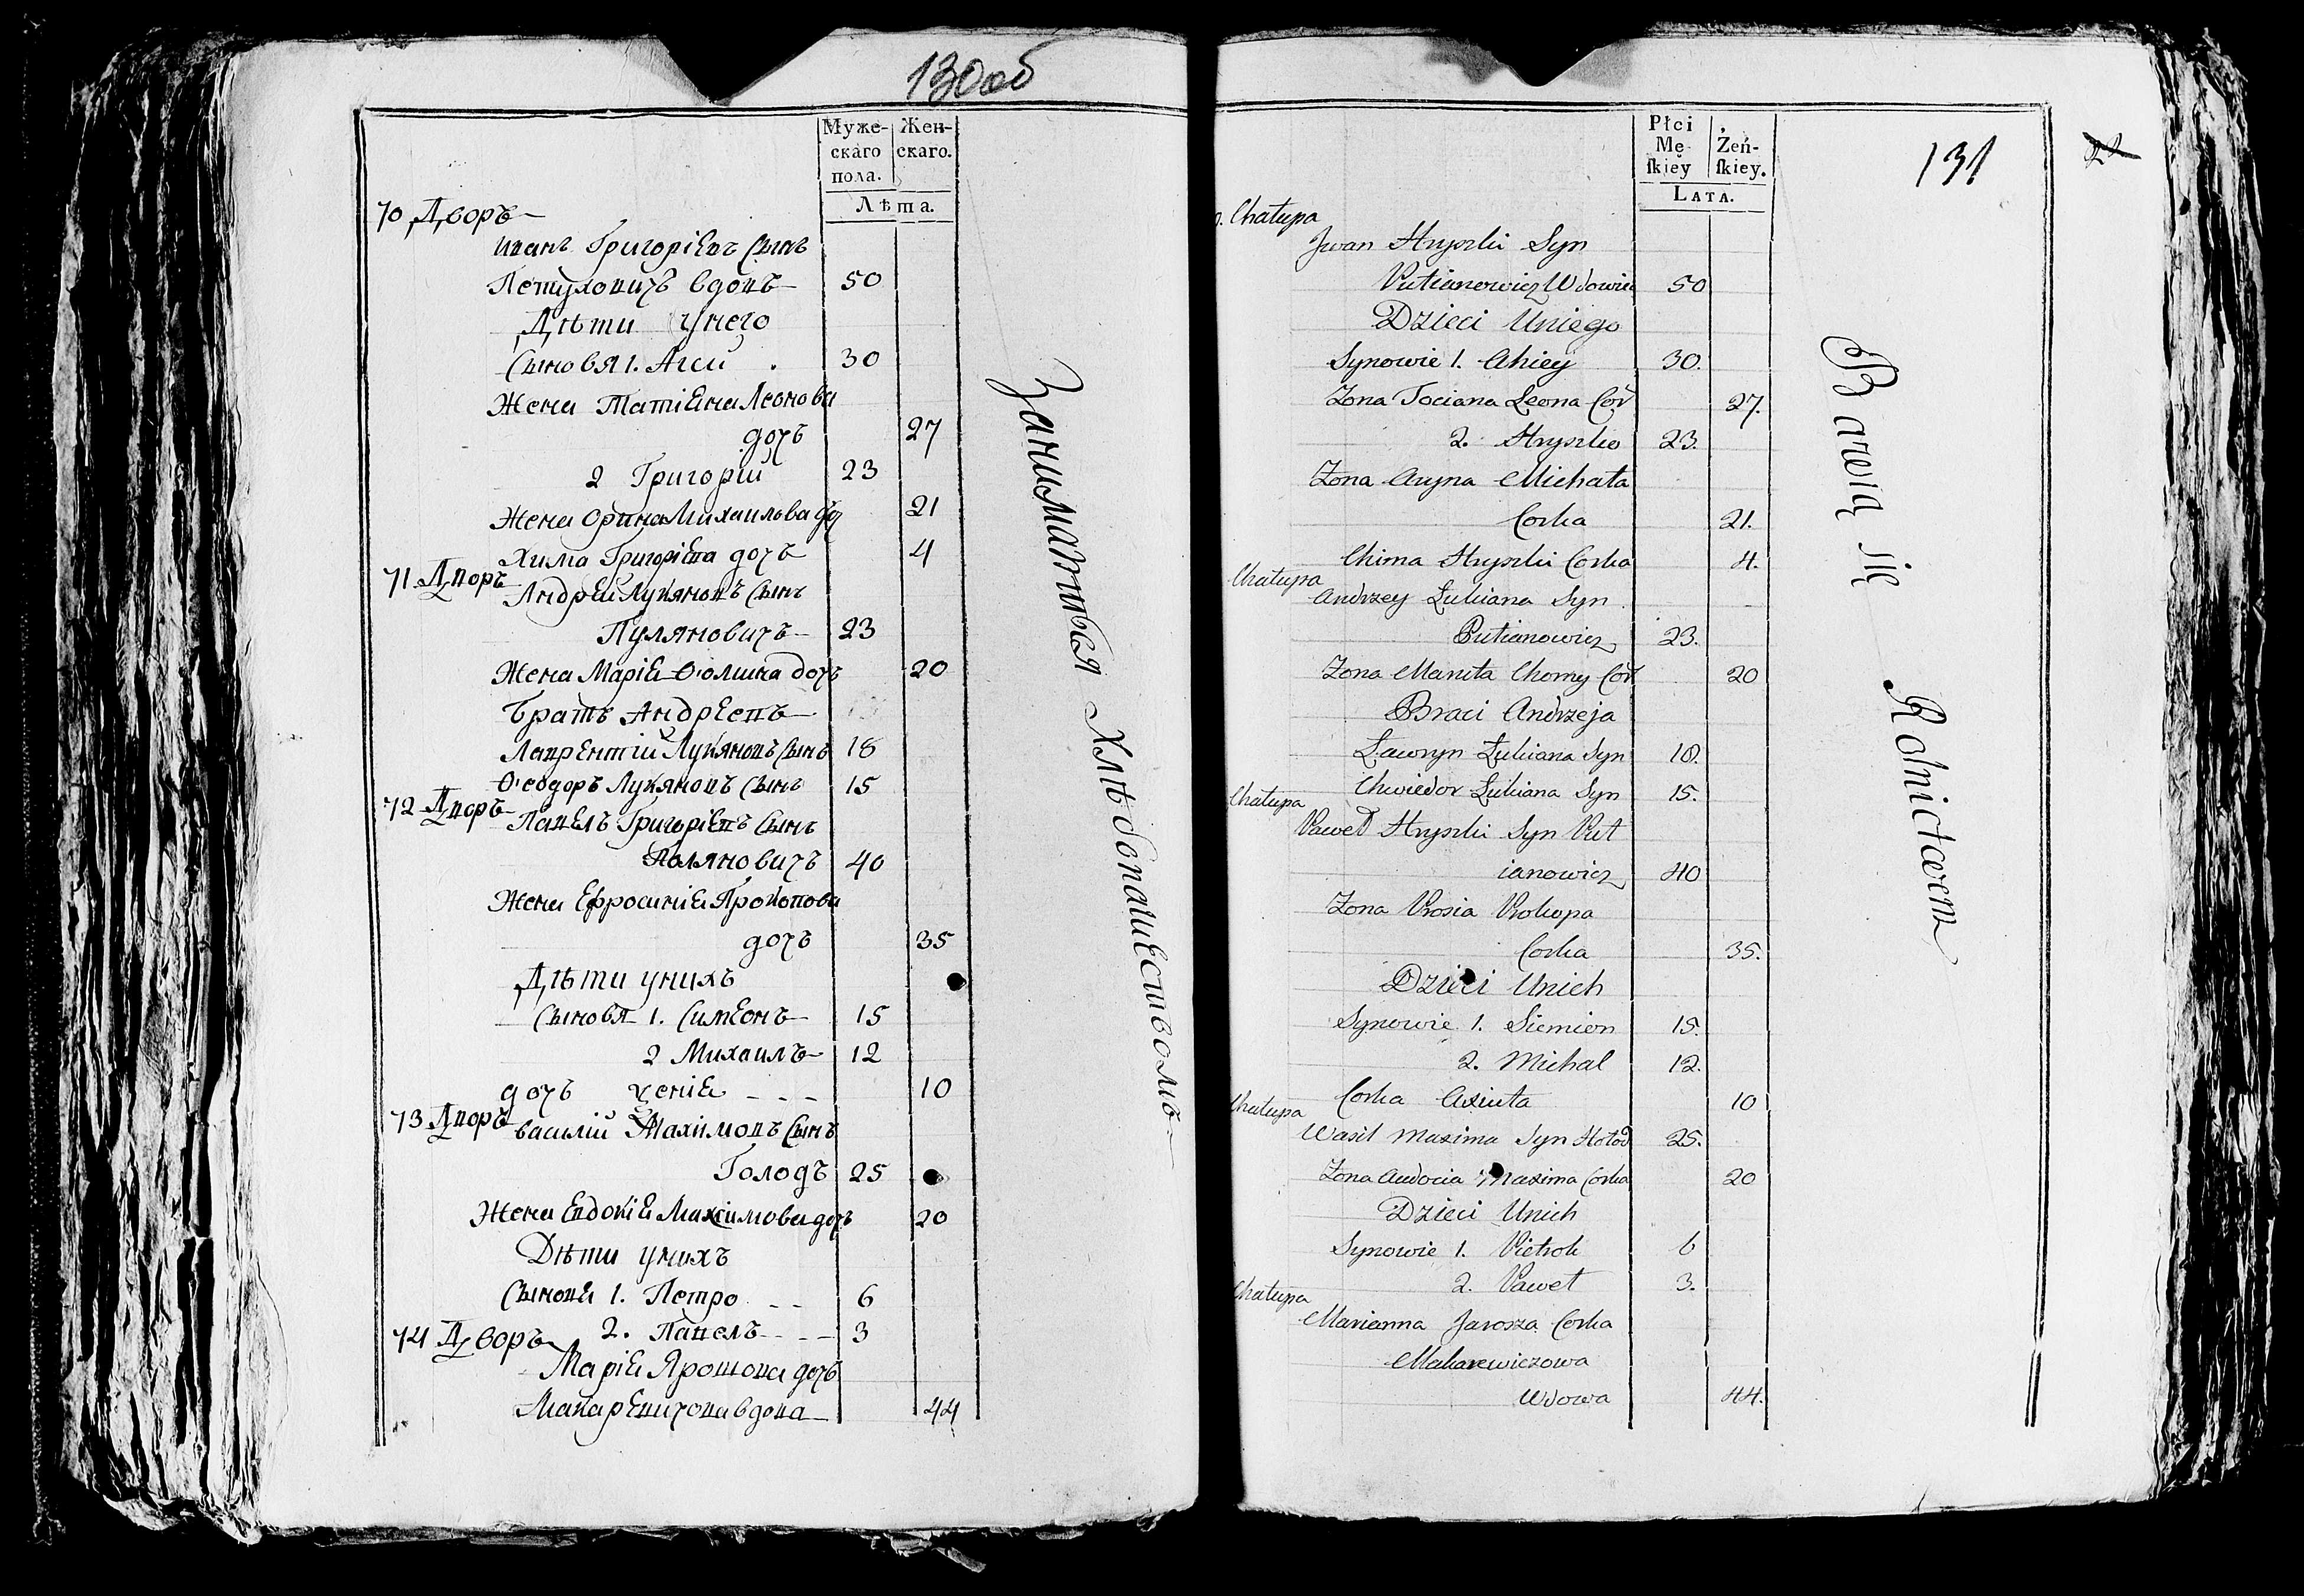 130об
Муже- Жен-
скаго скаго.
пола.
Лѣта.
70 Дворъ
Иванъ Григорїевъ Сынъ
вдовъ 50
Дѣти Унего
Сыновя 1. 30
Жена Татіана Леонова
дочъ 27
2 Григорїй 23
Жена Орина Михаилова до 21
Хима Григорїева дочъ 4
71 Дворъ
Андрей Лукяновъ Сынъ
Пуляновичъ 23
Жена Марїа Ѳомина дочъ 20
Братъ Андреевъ
Лаврентїй Лукяновъ Сынъ 18
Ѳеодоръ Лукяновъ Сынъ 15
72 Дворъ
Павелъ Григорїевъ Сынъ
40
Жена Ефросинїа Прокопова
дочъ 35
Дѣти унихъ
Сыновя 1. Симеонъ 15
2 Михаилъ 12
дочъ 10
73 Дворъ
Василїй Махїмовъ Сынъ
Голодъ 25
Жена Евдокїа Махсімова дочъ 20
Дѣти унихъ
Сынова 1. Петро 6
2. Павелъ 3
74 Дворъ
Марїа Ярошова дочъ
Макаревичова вдова 44
Заниматься хлѣбопашествомъ
131
Płci
Mę- Żeń-
ſkiey ſkiey.
Lata.
Chałupa
Jwan Hryszki Syn
Putianowicz Wdowiec 50
Dzieci Uniego
Synowie 1. Ahiey 30.
Żona Tociana Leona Cor 27.
2. Hryszko 23.
Żona Aryna Michała
Corka 21.
Chima Hryszki Corka 4.
Chałupa
Andrzey Łukiana Syn
Putianowicz 23.
Żona Chomy Cor 20
Braci Andrzeja
Ławryn Łukiana Syn 18.
Chwiedor Łukiana Syn 15.
Chałupa
Paweł Hryszki Syn Put
ianowicz 40
Żona Prosia Prokopa
Corka 35.
Dzieci Unich
Synowie 1. Siemion 15.
2. Michal 12.
Corka Axiuta 10
Chałupa
Wasil Maxima Syn Hołod 25.
Żona Audocia Maxima Corka 20
Dzieci Unich
Synowie 1. Pietrok 6
2. Paweł 3.
Chałupa
Marianna Jarosza Corka
Makarewiczowa
Wdowa 44.
Bawią się Rolnictwem